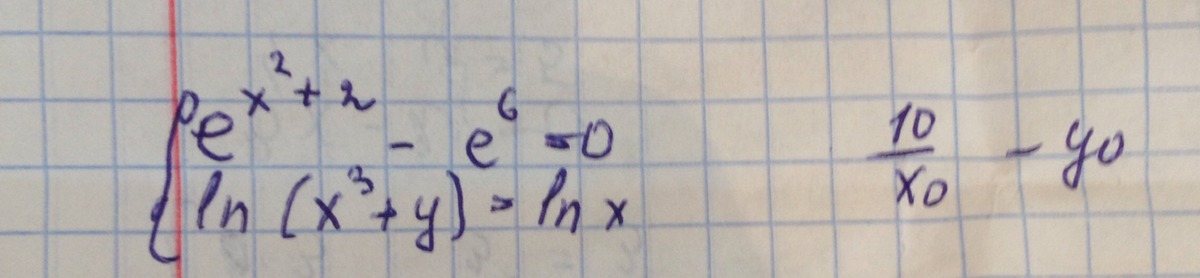 e^{x^2+2} - e^6 = 0
ln (x^3+y) = ln x
\frac{10}{x_0} - y_0